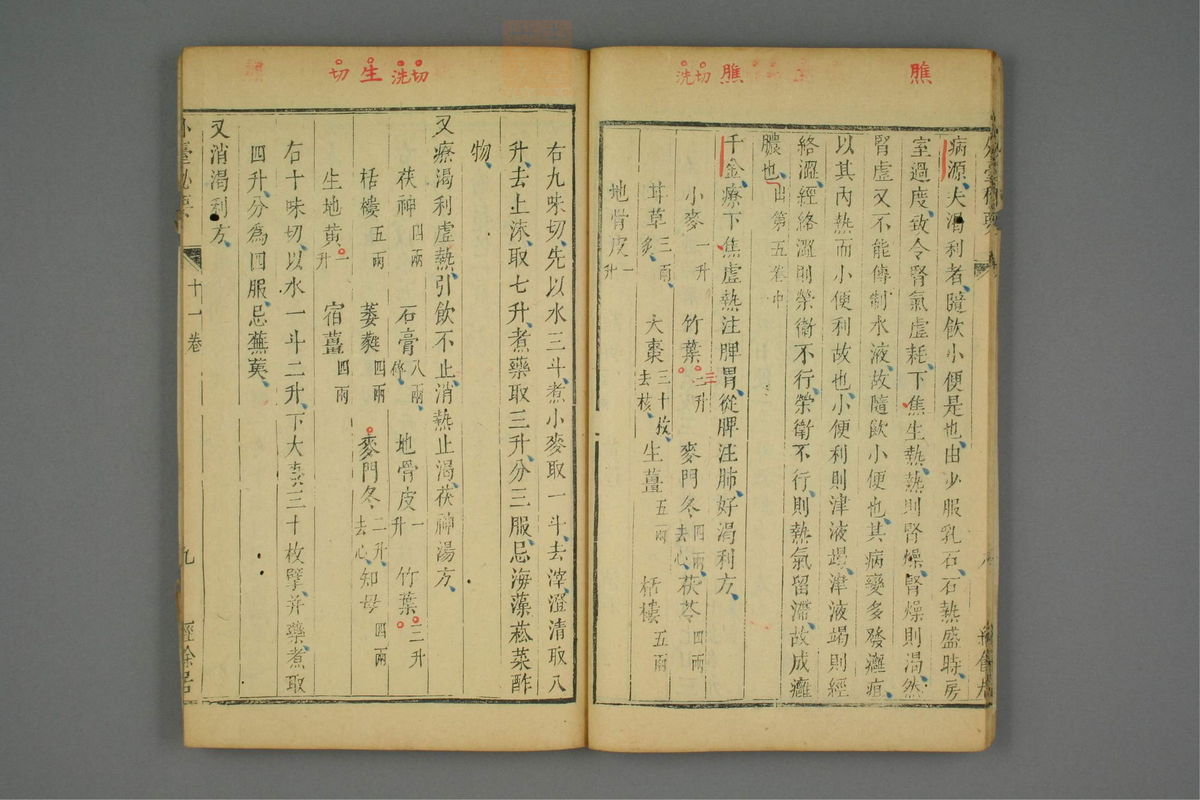 膲
膲
切
洗
病源夫渴利者隨飲小便是也由少服乳石石熱盛時房
室過度致令腎氣虛耗下焦生熱熱則腎燥腎燥則渴然
腎虛又不能傳制水液故隨飲小便也其病變多發癰疽
以其內熱而小便利故也小便利則津液竭津液竭則經
絡澀經絡澀則榮衛不行榮衛不行則熱氣留滯故成癰
膿也出第五卷中
千金療下焦虛熱注脾胃從脾注肺好渴利方
小麥一升 竹葉三升 麥門冬四兩去心 茯苓四兩
甘草三兩炙 大棗三十枚去核 生薑五兩 栝樓五兩
地骨皮一升
切
洗
生
切
右九味切先以水三斗煮小麥取一斗去滓澄清取八
升去上沫取七升煮藥取三升分三服忌海藻菘菜酢
物
又療渴利虛熱引飲不止消熱止渴茯神湯方
茯神四兩 石膏八兩碎 地骨皮一升 竹葉二升
栝樓五兩 萎蕤四兩 麥門冬二升去心 知母四兩
生地黃一升 宿薑四兩
右十味切以水一斗二升下大棗三十枚擘并藥煮取
四升分為四服忌蕪荑
又消渴利方
外臺秘要
十一卷
九
經餘居